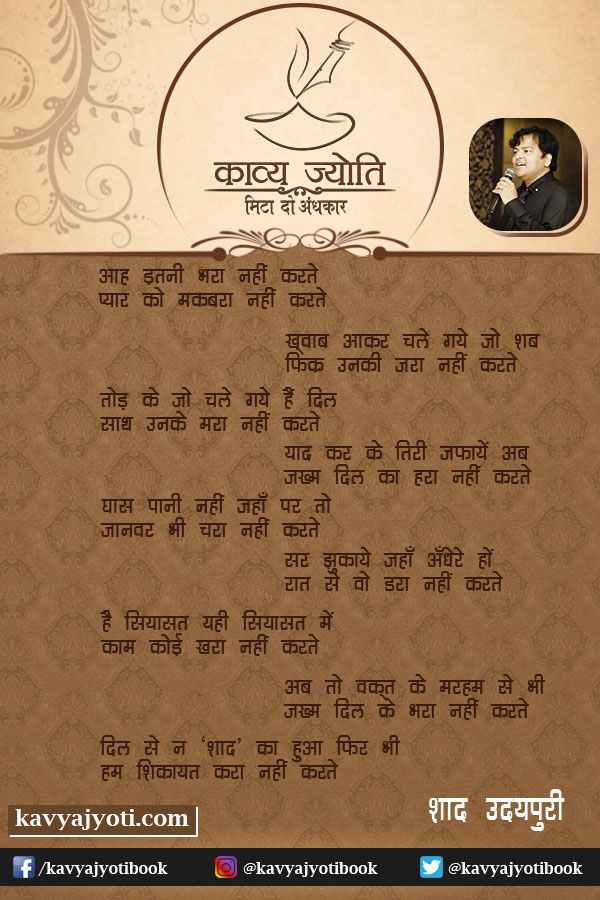 काव्य ज्योति
मिटा दो अंधकार
आह इतनी भरा नहीं करते
प्यार को मकबरा नहीं करते
ख़्वाब आकर चले गये जो शब
फिक्र उनकी जरा नहीं करते
तोड़ के जो चले गये हैं दिल
साथ उनके मरा नहीं करते
याद कर के तिरी जफायें अब
जख्म दिल का हरा नहीं करते
घास पानी नहीं जहाँ पर तो
जानवर भी चरा नहीं करते
सर झुकाये जहाँ अँधेरे हों
रात से वो डरा नहीं करते
है सियासत यही सियासत में
काम कोई खरा नहीं करते
अब तो वक्त के मरहम से भी
जख्म दिल के भरा नहीं करते
दिल से न ‘शाद’ का हुआ फिर भी
हम शिकायत करा नहीं करते
शाद उदयपुरी
kavyajyoti.com
/kavyajyotibook @kavyajyotibook @kavyajyotibook